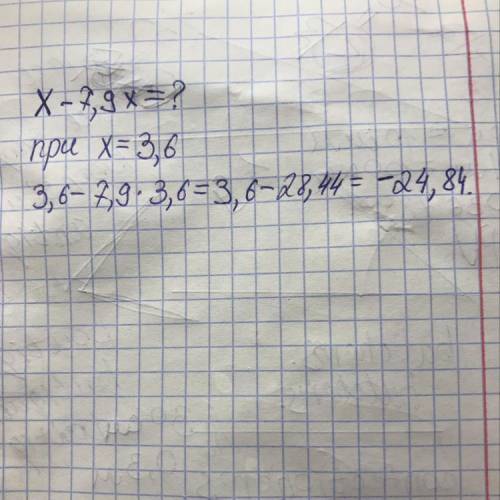 x - 7,9x = ?
при x = 3,6
3,6 - 7,9 · 3,6 = 3,6 - 28,44 = -24,84.